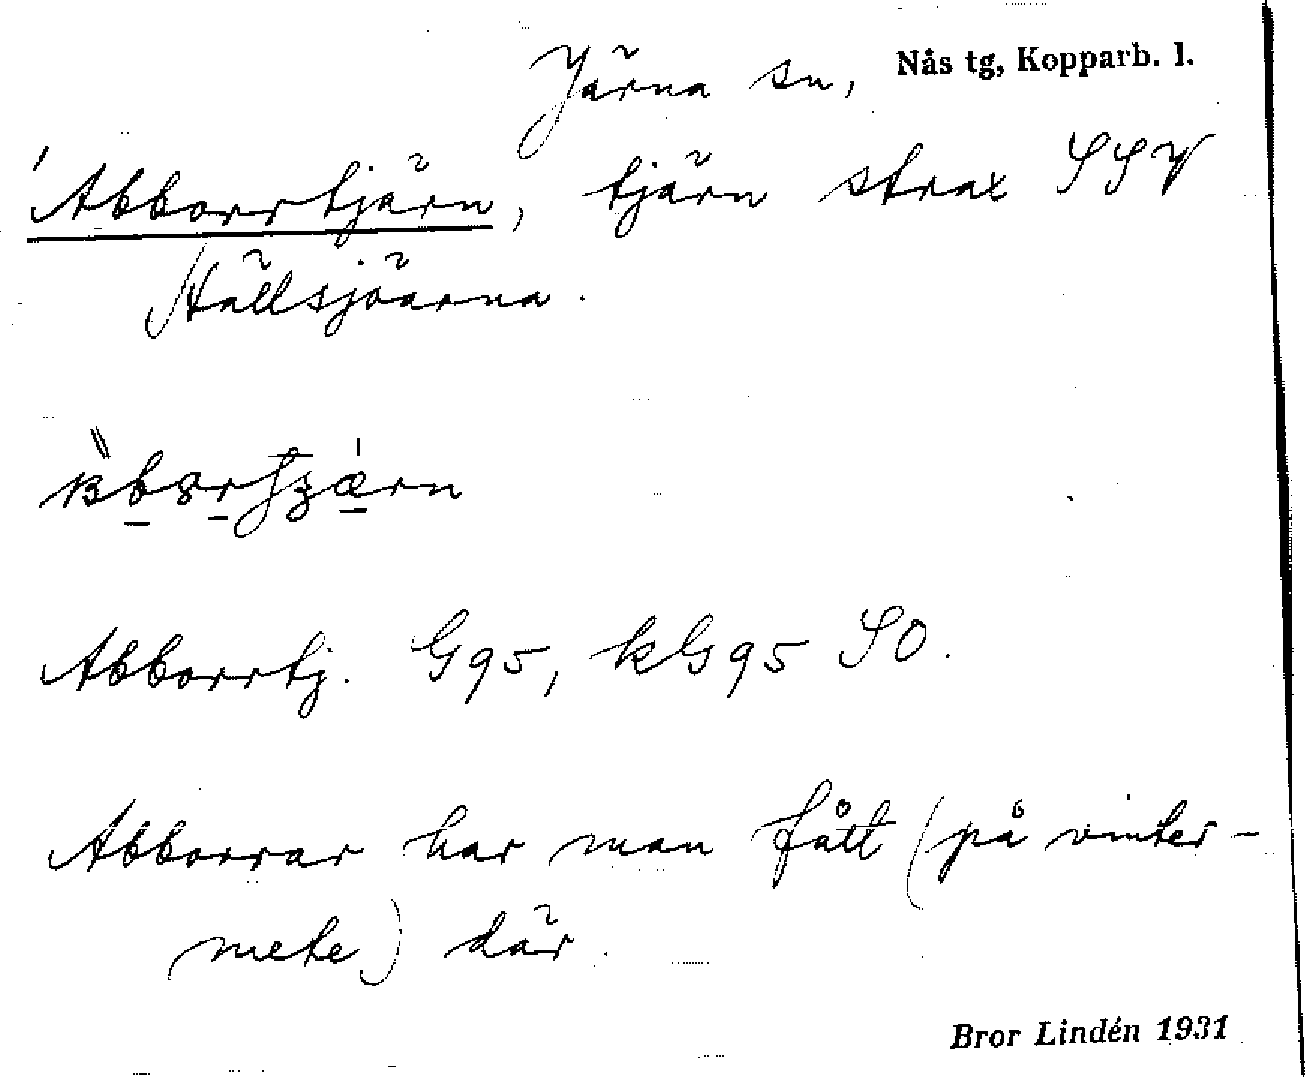 Järna sn, Nås tg, Kopparb. l.
Abborrtjärn, tjärn strax SSV
Hällsjöarna.
Abborrtj. G95, kG95 SO.
Abborrar har man fått (på vinter-
mete) där.
Bror Lindén 1931